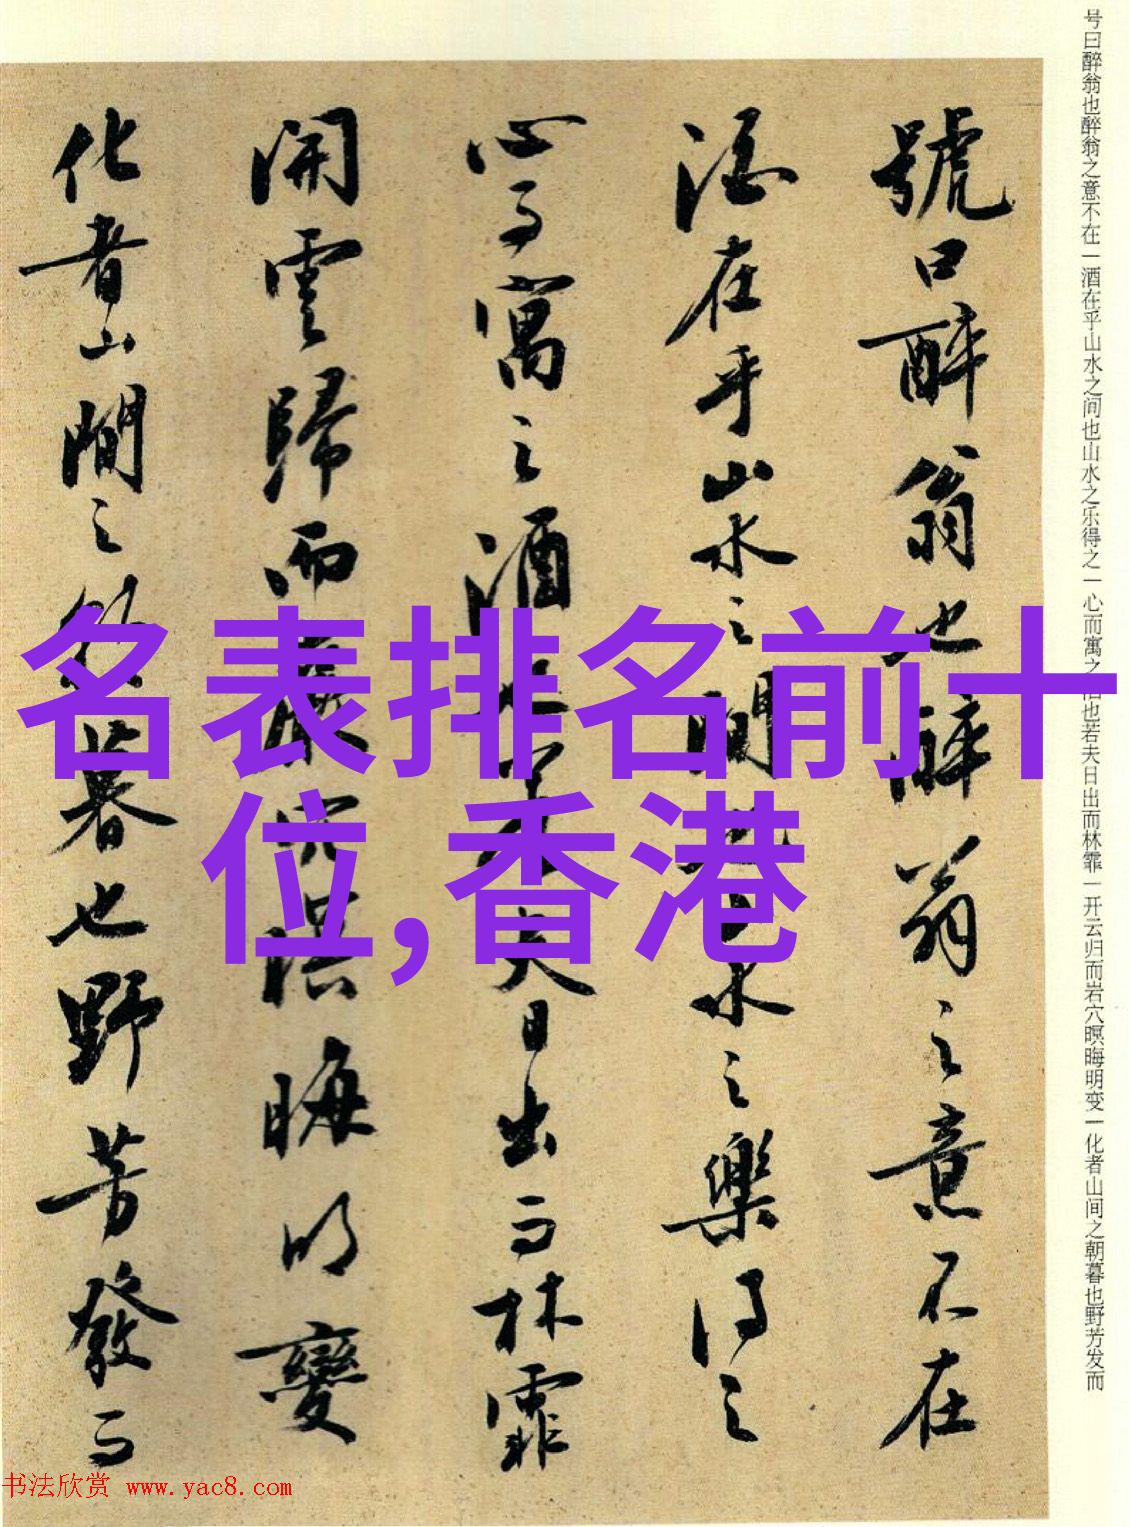 号曰醉翁也醉翁之意不在一酒在乎山水之间也山水之乐得之一心而寓之酒也若夫日出而林霏一开云归而岩穴暝晦明变一化者山间之朝暮也野芳发而
號曰醉翁也醉翁之意不在
酒在乎山水之間也山水之樂得之
心而寓之酒也若夫日出而林霏
開雲歸而巖穴暝晦明變
化者山間之朝暮也野芳發而
名表排名前十
位,香港
书法欣赏 www.yac8.com